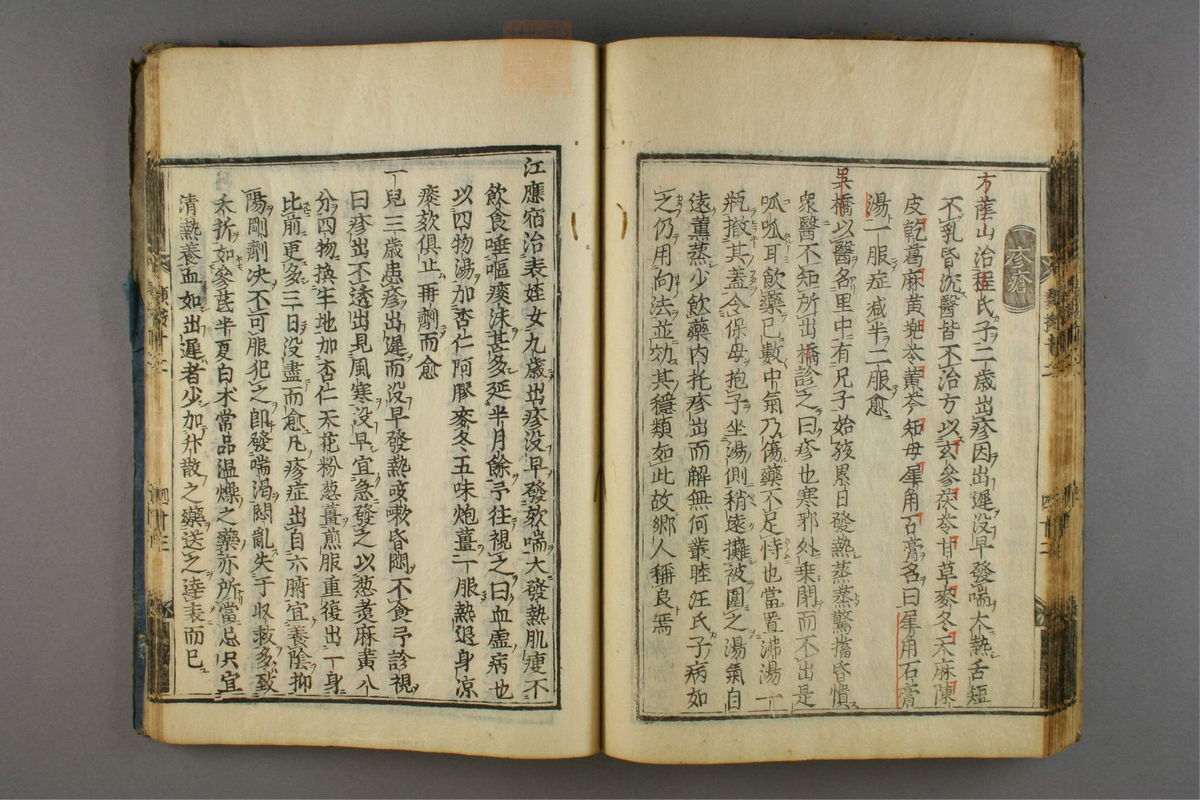 疹瘡
方蓙山治程氏子二歲出疹因出遲没早發喘大熱舌短
不乳昏沉醫皆不治方以玄參茯苓甘草麥冬天麻陳
皮乾葛麻黄苓黄芩知母犀角石膏名曰犀角石膏
湯一服症减半二服愈
吴橋以醫名里中有兄子始孩累日發熱蒸蒸驚搐昏憒
衆醫不知所出橋診之曰疹也寒邪外乗閉而不出是
呱呱耳飲藥已數中氣乃傷藥不足恃也當置沸湯一
瓶撤其盖令保母抱子坐湯側稍遠擁被圍之湯氣自
遠薫蒸少飲藥内托疹出而解無何叢睦汪氏子病如
之仍用向法並効其穩類如此故鄉人稱良焉
江應宿治表姪女九歲出疹没早發欬喘大發熱肌瘦不
飲食唾嘔痰沫甚多延半月餘予往視之曰血虚病也
以四物湯加杏仁阿膠麥冬五味炮薑一服熱退身凉
痰欬俱止再劑而愈
一兒三歲患疹出遲而没早發熱咳嗽昏悶不食予診視
曰疹出不透出見風寒没早宜急發之以葱煑麻黄八
分四物換生地加杏仁天花粉葱薑煎服重復出一身
比前更多三日没盡而愈凡疹症出自六腑宜養陰抑
陽剛劑决不可服犯之卽發喘渴悶亂失于収救多致
夭折如參芪半夏白术常品温燥之藥亦所當忌只宜
清熱養血如出遲者少加升散之藥送之達表而已